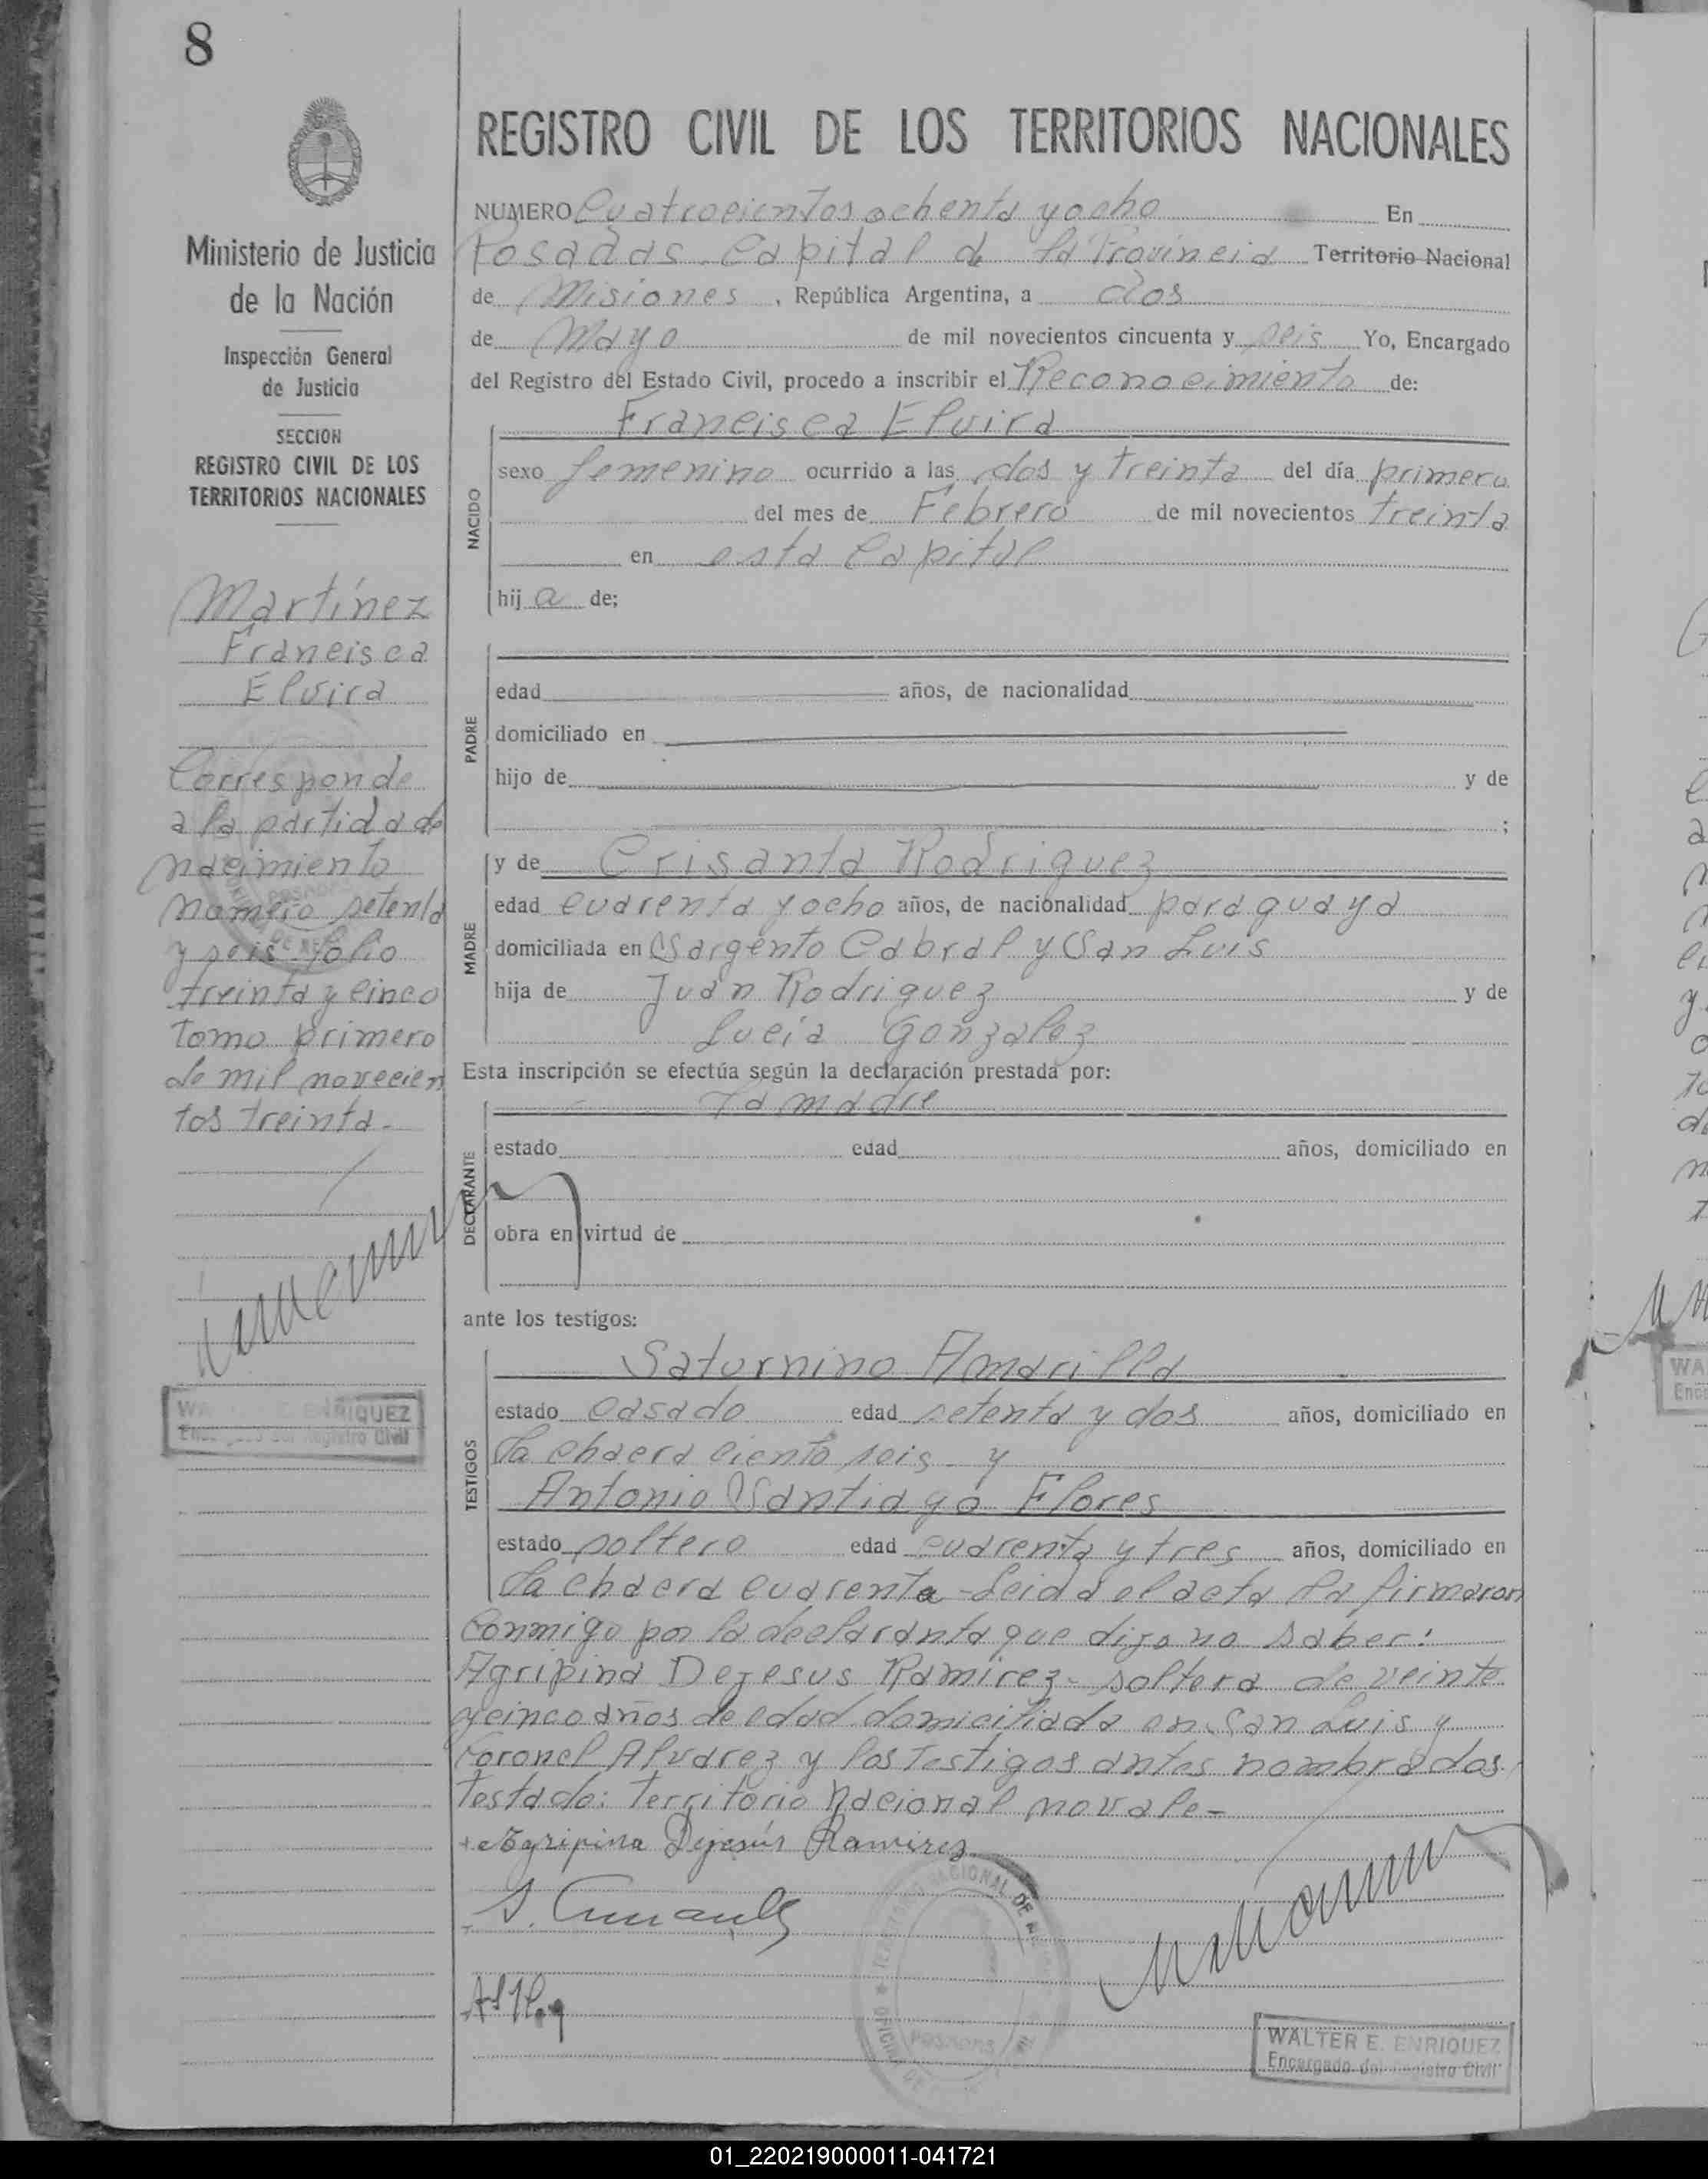 8
REGISTRO CIVIL DE LOS TERRITORIOS NACIONALES
Ministerio de Justicia
de la Nación
Inspección General
de Justicia
SECCION
REGISTRO CIVIL DE LOS
TERRITORIOS NACIONALES
Martínez
Francisca
Elvira
Corresponde
a la partida de
nacimiento
número setenta
y seis folio
treinta y cinco
tomo primero
de mil novecien
tos treinta.
ENRIQUEZ
Registro Civil
NUMERO Cuatrocientos ochenta y ocho En
Posadas Capital de la Provincia Territorio Nacional
de Misiones, República Argentina, a dos
de Mayo de mil novecientos cincuenta y seis Yo, Encargado
del Registro del Estado Civil, procedo a inscribir el Reconocimiento de:
Francisca Elvira
NACIDO
sexo femenino ocurrido a las dos y treinta del día primero
del mes de Febrero de mil novecientos treinta
en esta Capital
hij a de;
PADRE
edad años, de nacionalidad
domiciliado en
hijo de y de
;
MADRE
y de Crisanta Rodriguez
edad cuarenta y ocho años, de nacionalidad paraguaya
domiciliada en Sargento Cabral y San Luis
hija de Juan Rodriguez y de
Lucia Gonzalez
Esta inscripción se efectúa según la declaración prestada por:
La madre
DECLARANTE
estado edad años, domiciliado en
obra en virtud de
ante los testigos:
TESTIGOS
Saturnino Amarilla
estado casado edad setenta y dos años, domiciliado en
la chacra ciento seis y
Antonio Santiago Flores
estado soltero edad cuarenta y tres años, domiciliado en
la chacra cuarenta - Leida el acta la firmaron
conmigo por la declaranta que dijo no saber:
Agripina Dejesus Ramirez - soltera de veinte
y cinco años de edad domiciliada en San Luis y
Coronel Alvarez y los testigos antes nombrados.
Testado: Territorio Nacional no vale -
Agripina Dejesús Ramirez
NACIONAL DE
OFICINA DE
POSADAS
WALTER E. ENRIQUEZ
Encargado del Registro Civil
WA
01_220219000011-041721